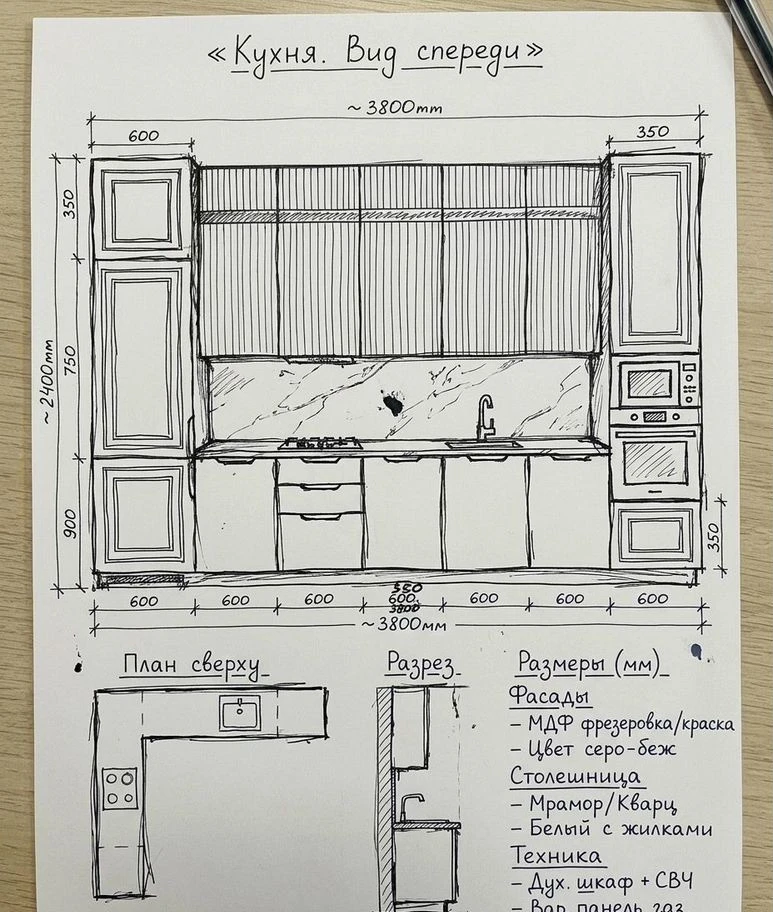 «Кухня. Вид спереди»
~3800mm
600
350
350
~2400mm
750
900
350
350
600 600 600 600. 600 600 600
3800
~3800мм
План сверху
Разрез
Размеры (мм)
Фасады
– МДФ фрезеровка/краска
– Цвет серо-беж
Столешница
– Мрамор/Кварц
– Белый с жилками
Техника
– Дух. шкаф + СВЧ
– Вар. панель газ.